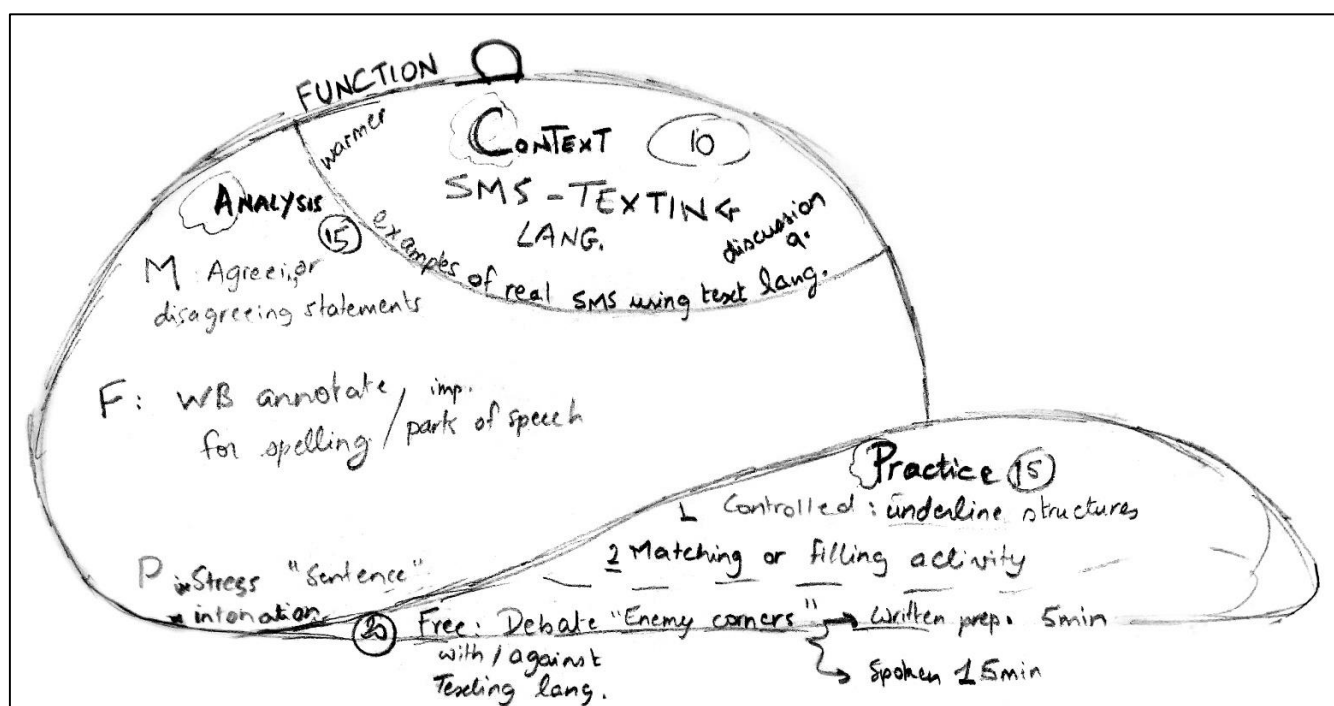 FUNCTION
warmer
CONTEXT 10
SMS - TEXTING
LANG.
discussion
q.
examples of real SMS using text lang.
ANALYSIS
15
M: Agreei or
disagreeing statements
F: WB annotate / imp.
for spelling / park of speech
P * Stress "Sentence"
* intonation
Practice 15
1 Controlled: underline structures
2 Matching or filling activity
20 Free: Debate "Enemy corners" → Written prep. 5min
with / against
Texting lang.
Spoken 15min